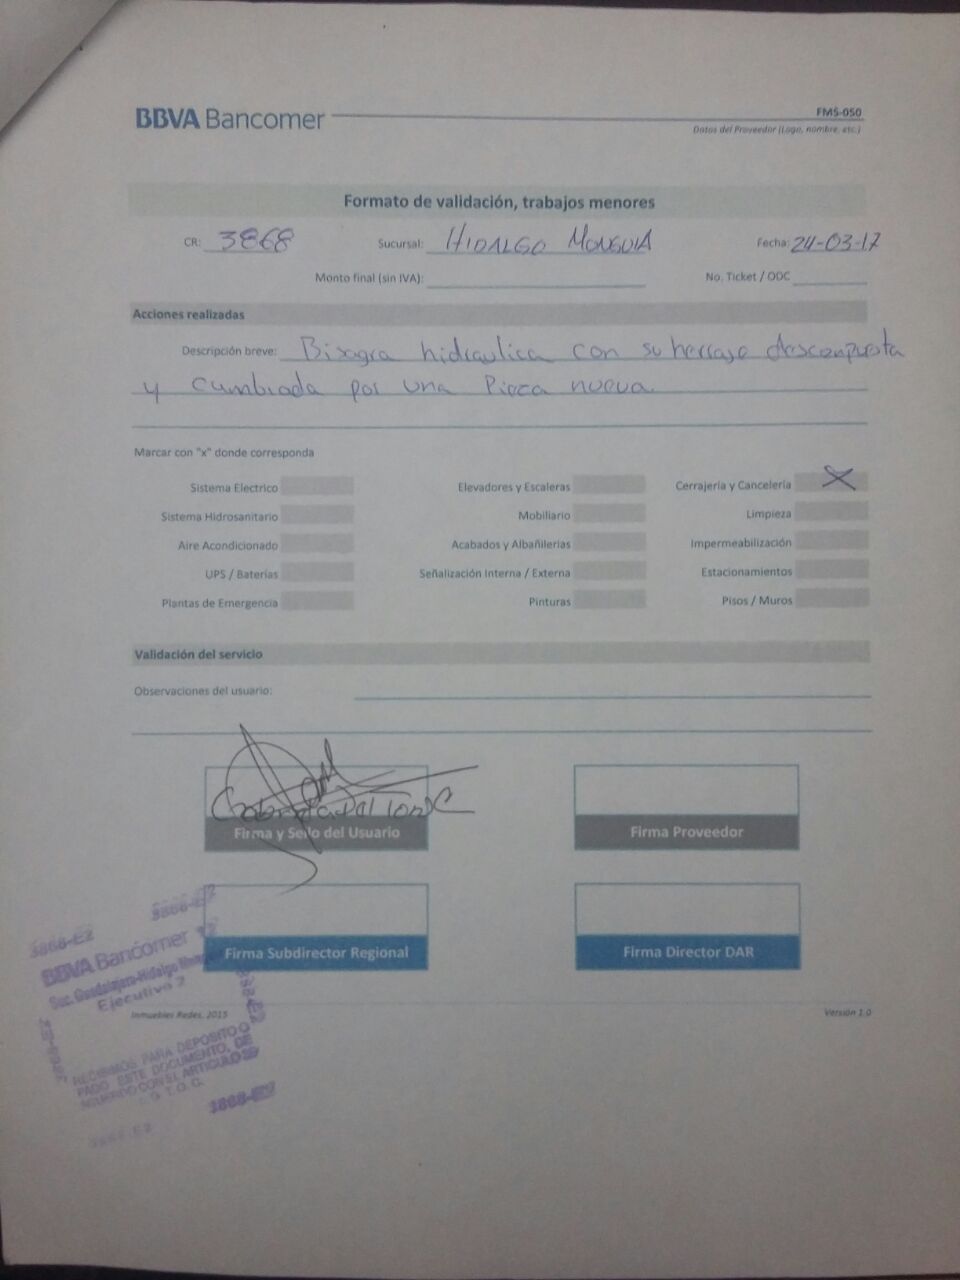 BBVA Bancomer
FMS-050
Datos del Proveedor (Logo, nombre, etc.)
Formato de validación, trabajos menores
CR: 3868 Sucursal: HIDALGO MONGUIA Fecha: 24-03-17
Monto final (sin IVA): No. Ticket / ODC
Acciones realizadas
Descripción breve: Bisagra hidraulica con su herraje descompuesta
y cambiada por una Pieza nueva.
Marcar con "x" donde corresponda
Sistema Electrico Elevadores y Escaleras Cerrajería y Cancelería X
Sistema Hidrosanitario Mobiliario Limpieza
Aire Acondicionado Acabados y Albañilerias Impermeabilización
UPS / Baterías Señalización Interna / Externa Estacionamientos
Plantas de Emergencia Pinturas Pisos / Muros
Validación del servicio
Observaciones del usuario:
Firma y Sello del Usuario Firma Proveedor
Firma Subdirector Regional Firma Director DAR
3868-E2 3868-E2
BBVA Bancomer 12
Suc. Guadalajara-Hidalgo
Ejecutivo 2
3868-E2
Inmuebles Redes, 2015 Versión 1.0
RECIBIMOS PARA DEPOSITO O
PAGO ESTE DOCUMENTO, DE
ACUERDO CON EL ARTICULO
L.T.O.C.
3868-E2
3868-E2